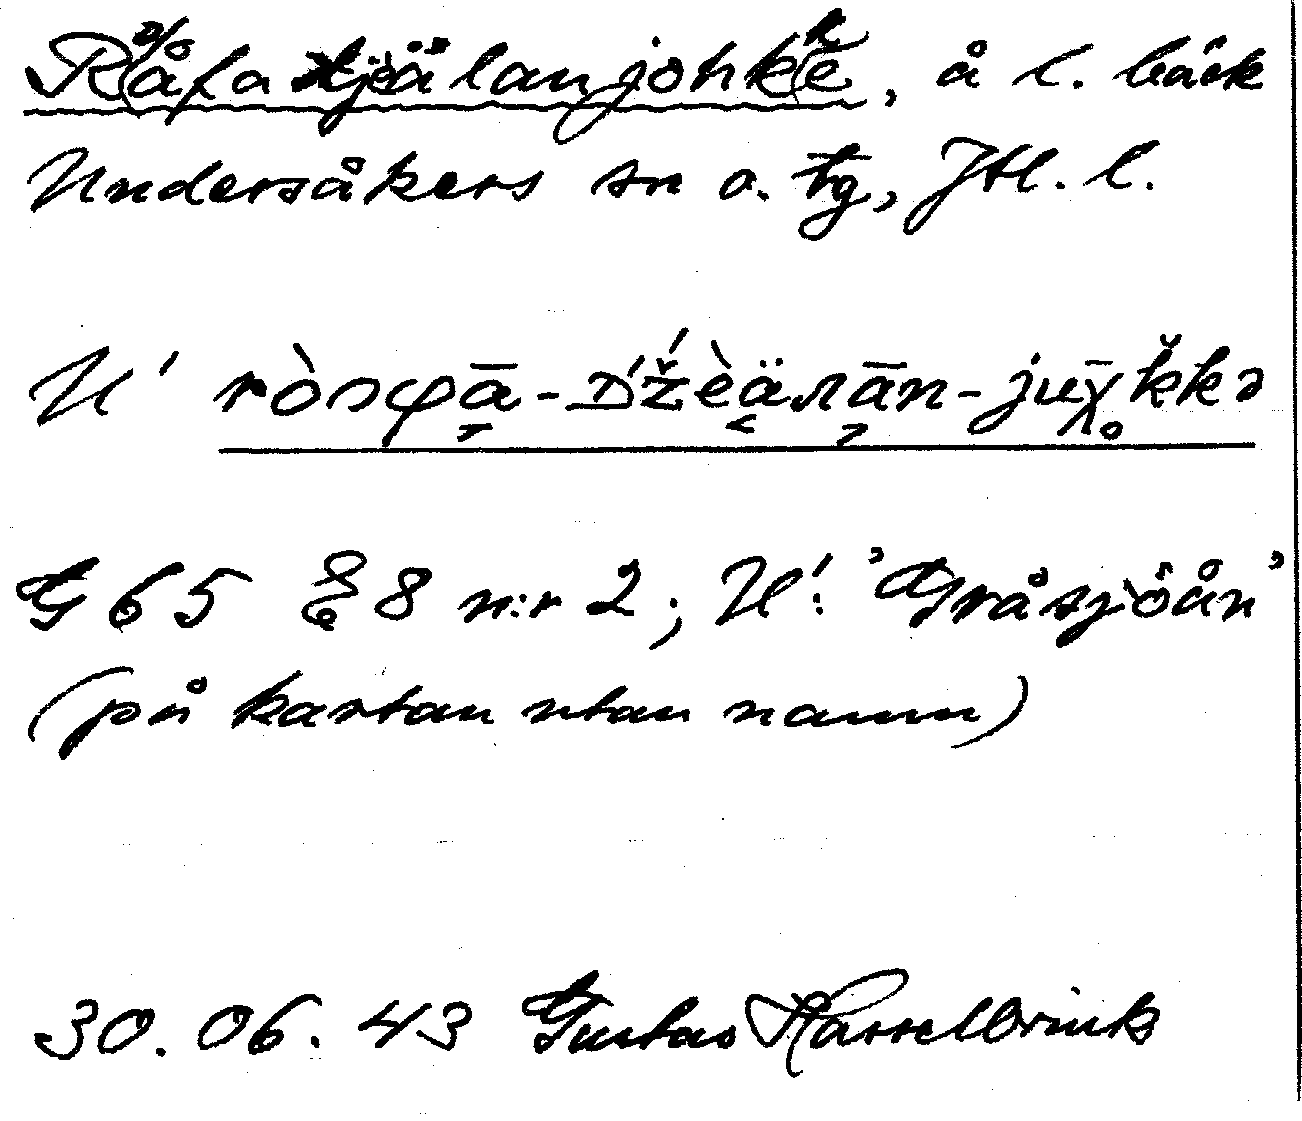 Råfa tjälanjohke, å l. bäck
Undersåkers sn o. tg, Jtl. l.
U' ròɔφā-D'ž́èäʌān-juχ̄k̆kə
G 65 E 8 n:r 2; U': 'Gråsjöån'
(på kartan utan namn)
30.06.43 Gustav Hasselbrink